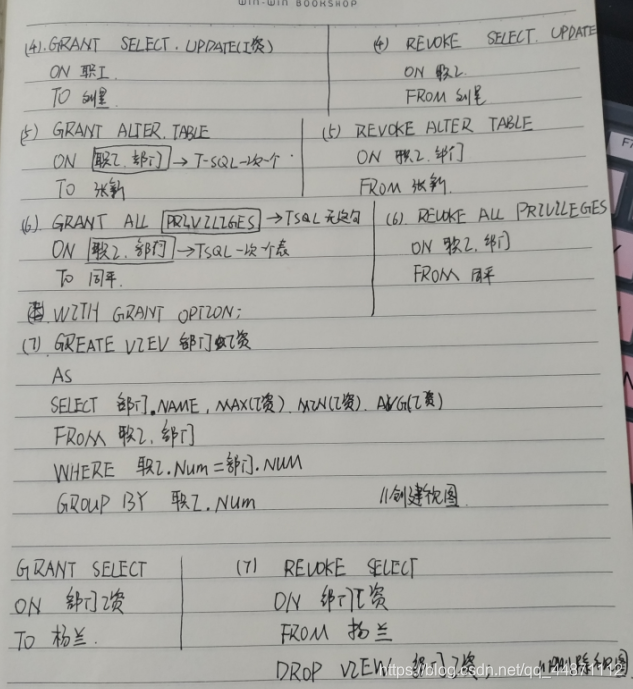 WIN-WIN BOOKSHOP
(4). GRANT SELECT. UPDATE(工资)
ON 职工.
TO 刘星
(4) REVOKE SELECT. UPDATE
ON 职工.
FROM 刘星
(5) GRANT ALTER. TABLE
ON 职工. 部门 → T-SQL一次一个.
TO 张新
(5) REVOKE ALTER TABLE
ON 职工. 部门
FROM 张新.
(6). GRANT ALL PRIVILIGES → TSQL 无这句
ON 职工. 部门 → TSQL一次一个表
TO 周平.
WITH GRANT OPTION;
(6) REVOKE ALL PRIVILEGES
ON 职工. 部门
FROM 周平
(7) GREATE VIEV 部门工资
AS
SELECT 部门.NAME, MAX(工资). MIN(工资). AVG(工资)
FROM 职工. 部门
WHERE 职工.Num = 部门.NUM
GROUP BY 职工.Num //创建视图
GRANT SELECT
ON 部门工资
TO 杨兰.
(7) REVOKE SELECT
ON 部门工资
FROM 杨兰
DROP VIEW 部门工资.